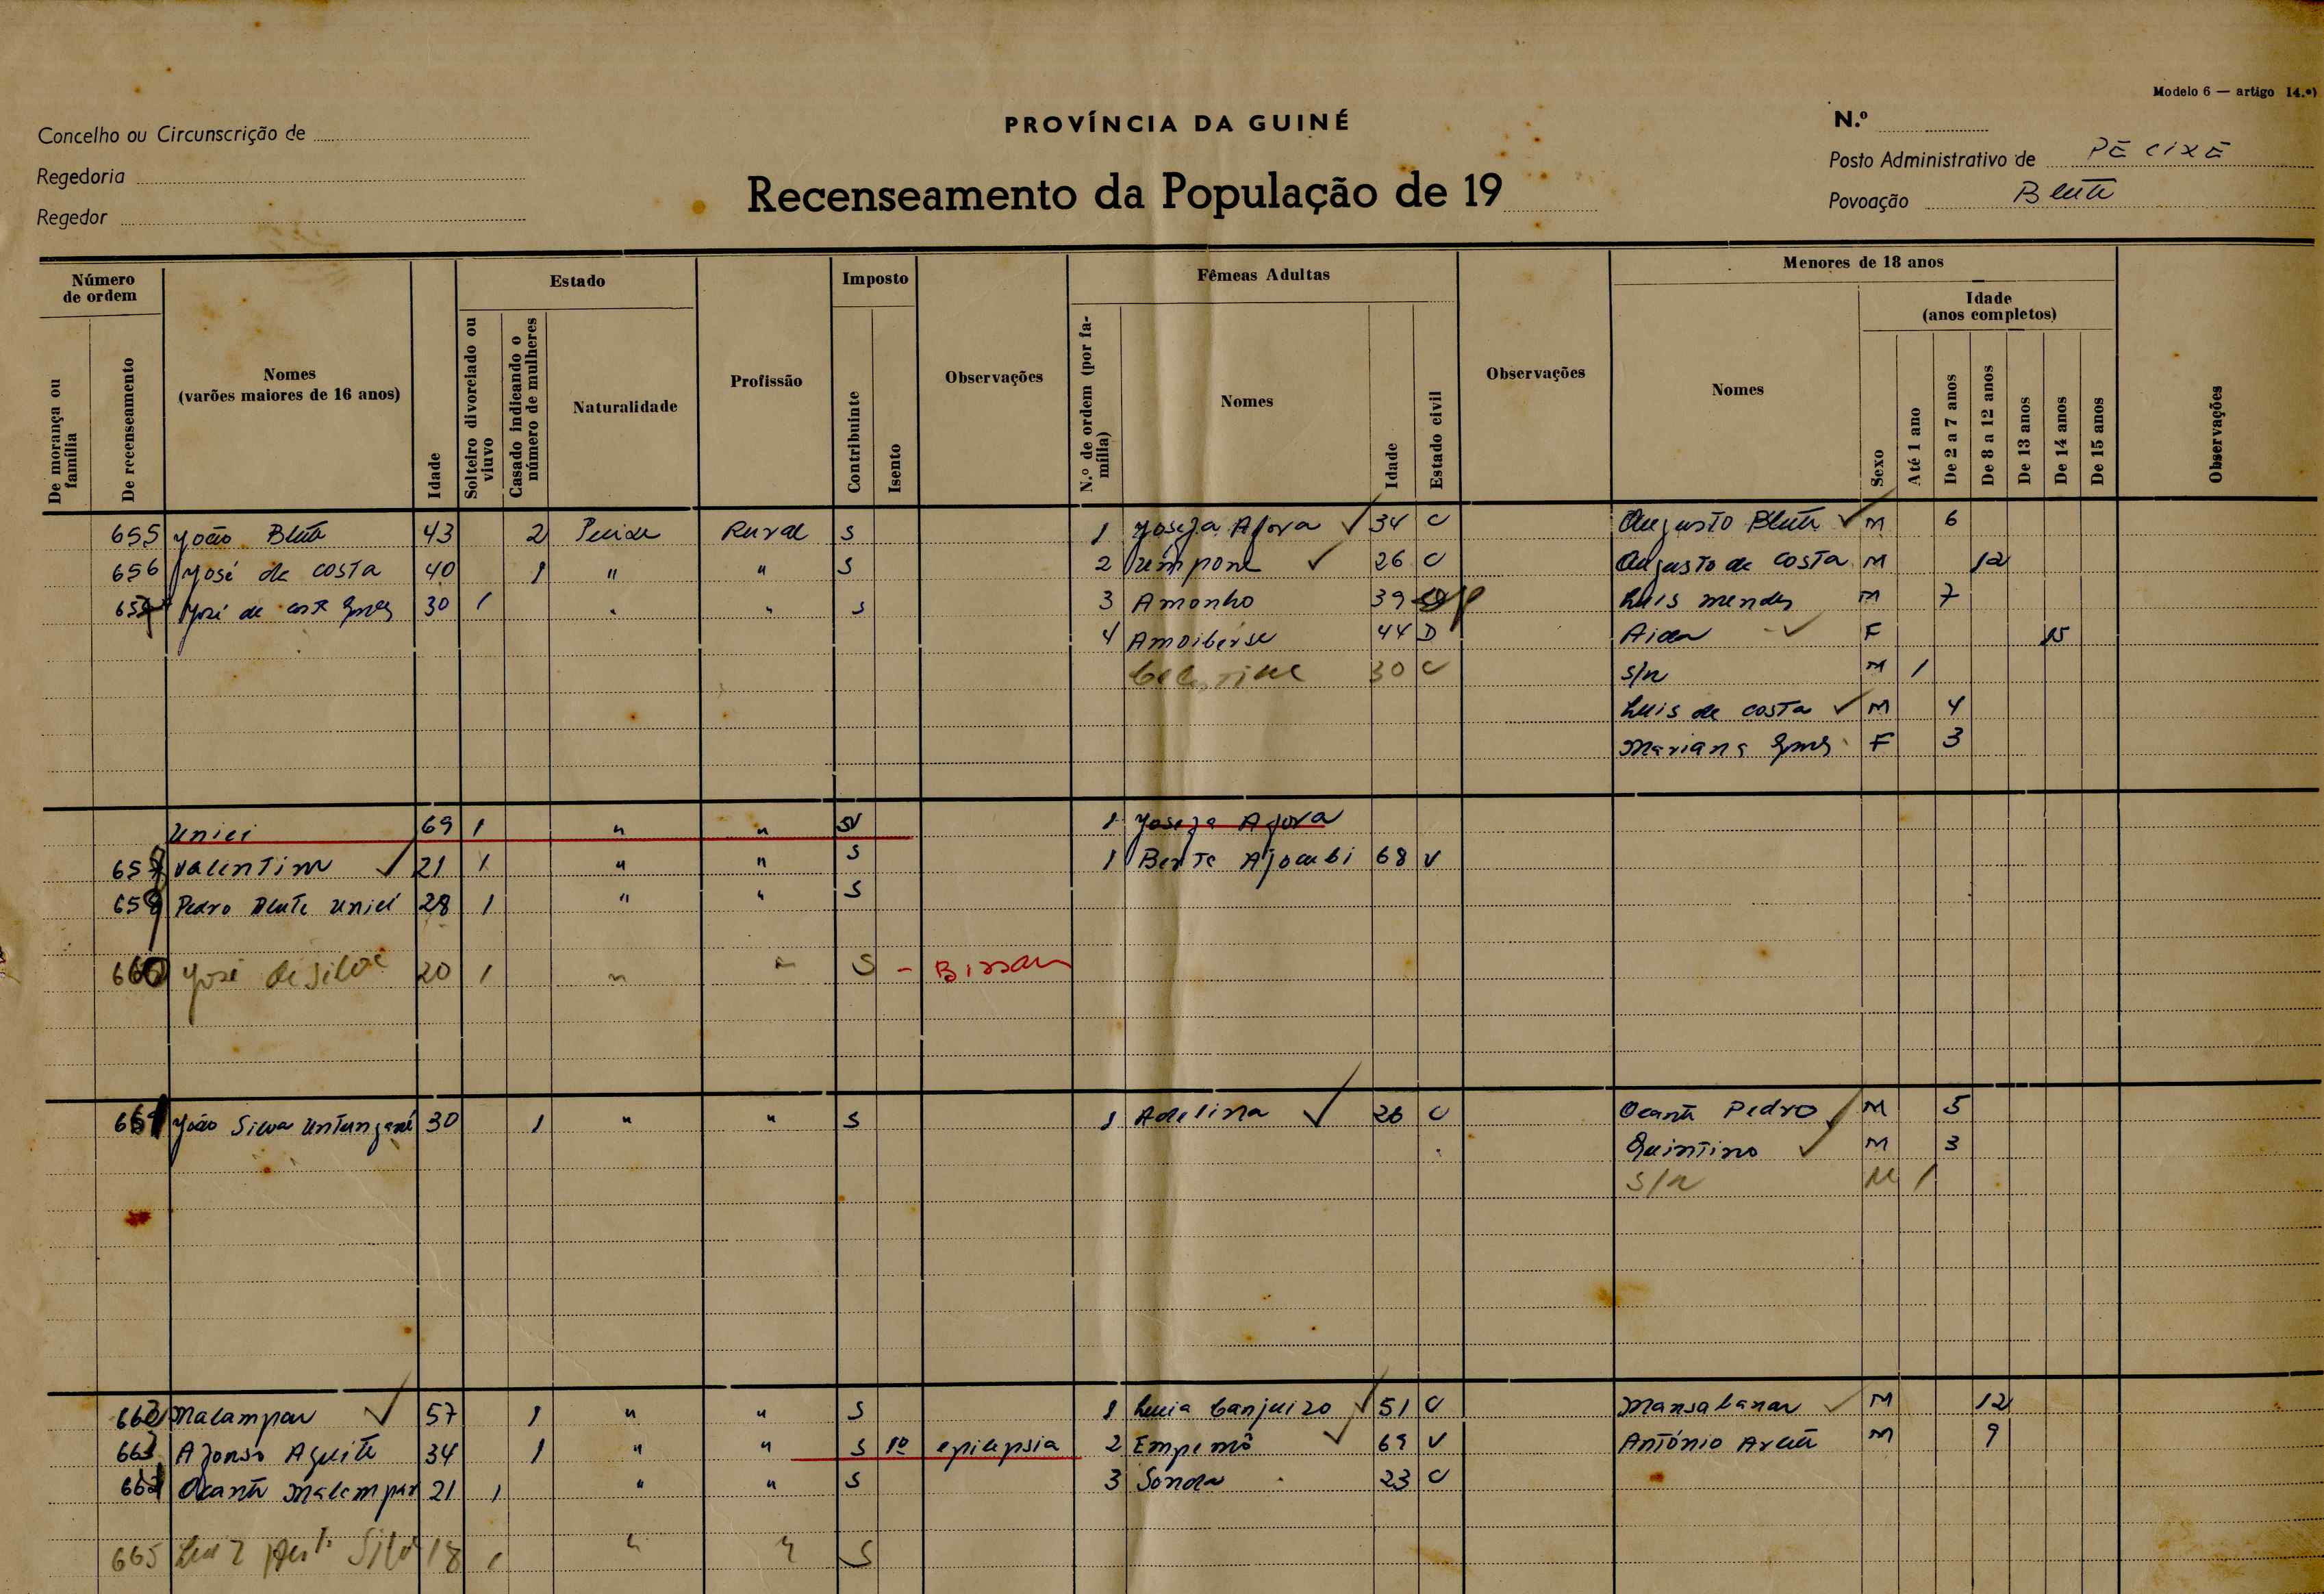 Modelo 6 — artigo 14.º)
PROVÍNCIA DA GUINÉ
Concelho ou Circunscrição de
Regedoria
Regedor
Recenseamento da População de 19
N.º
Posto Administrativo de PECIXE
Povoação Blute
Número de ordem
De morança ou família
De recenseamento
Nomes
(varões maiores de 16 anos)
Idade
Estado
Solteiro divorciado ou viuvo
Casado indicando o número de mulheres
Naturalidade
Profissão
Imposto
Contribuinte
Isento
Observações
Fêmeas Adultas
N.º de ordem (por família)
Nomes
Idade
Estado civil
Observações
Menores de 18 anos
Nomes
Idade
(anos completos)
Sexo
Até 1 ano
De 2 a 7 anos
De 8 a 12 anos
De 13 anos
De 14 anos
De 15 anos
Observações
655 João Blute 43 2 Pecixe Rural S 1 Josefa Afora ✓ 34 C Augusto Blute ✓ M 6
656 José da Costa 40 1 " " S 2 ✓ 26 C Augusto da Costa M 12
José da Costa Gomes 30 1 " " S 3 Amonho 39 Luis Mendes M 7
4 Amoiberse 44 D Aida ✓ F 15
Celestine 30 C S/n M 1
Luis da Costa ✓ M 4
Mariana Gomes F 3
Uniei 69 1 " " 1 Josefa Afora
Valentim ✓ 21 1 " " S 1 Berta Ajoubi 68 V
Pedro Blute Uniei 28 1 " " S
660 José da Silva 20 1 " " S - Bissau
661 João Silva 30 1 " " S 1 Adelina ✓ 26 C Ocante Pedro ✓ M 5
Quintino ✓ M 3
S/n M 1
662 Malampar ✓ 57 1 " " S 1 Luisa Canjuizo ✓ 51 C Mansabanar ✓ M 12
663 Afonso Aguite 34 1 " " S 10 epilepsia 2 Empemô ✓ 69 V António M 9
664 Ocante Malampar 21 1 " " S 3 Sonda 23 C
665 Silva 18 1 " " S